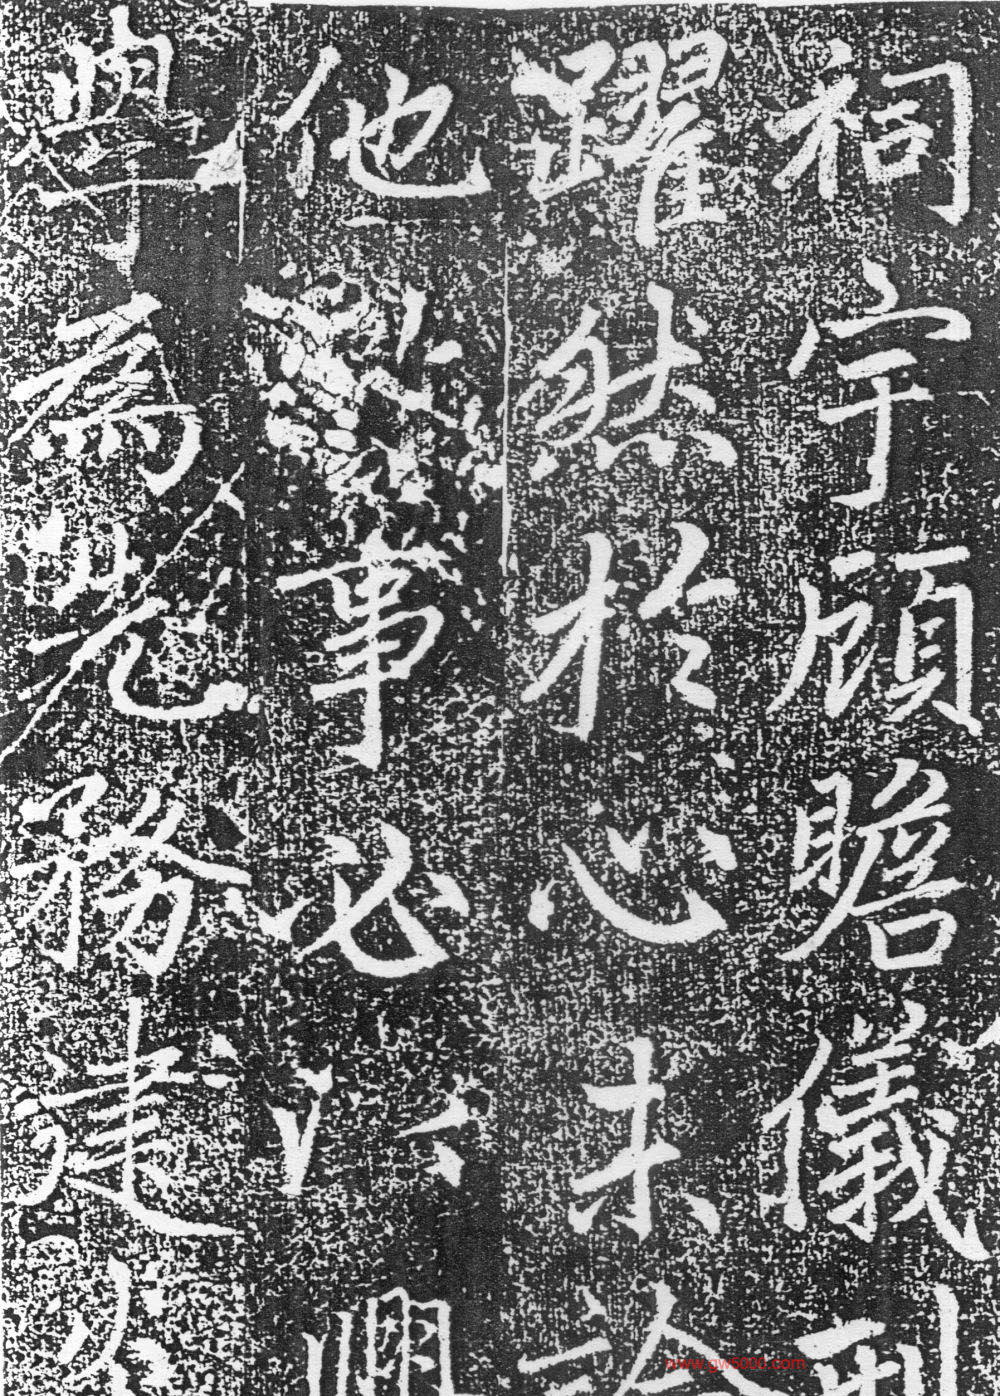 祠宇顧瞻儀刑
躍然於心未論
他事必以興
學為先務建
www.gw5000.com